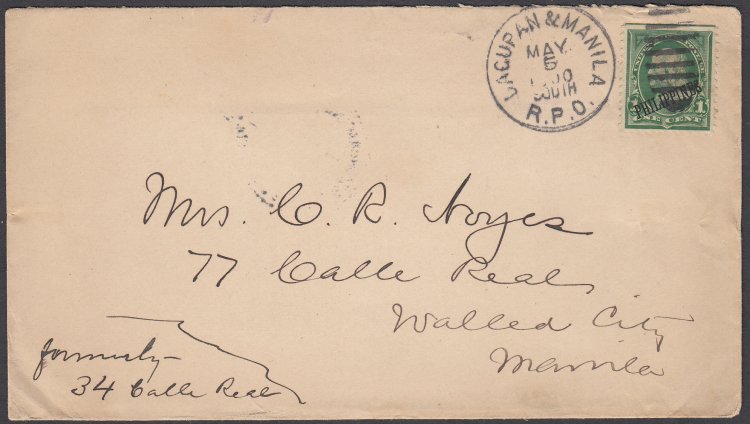 DAGUPAN & MANILA
MAY
5
SOUTH
R.P.O.
PHILIPPINES
1
ONE CENT
Mrs. C. R. Noyes
77 Calle Real
Walled City
Manila
formerly
34 Calle Real